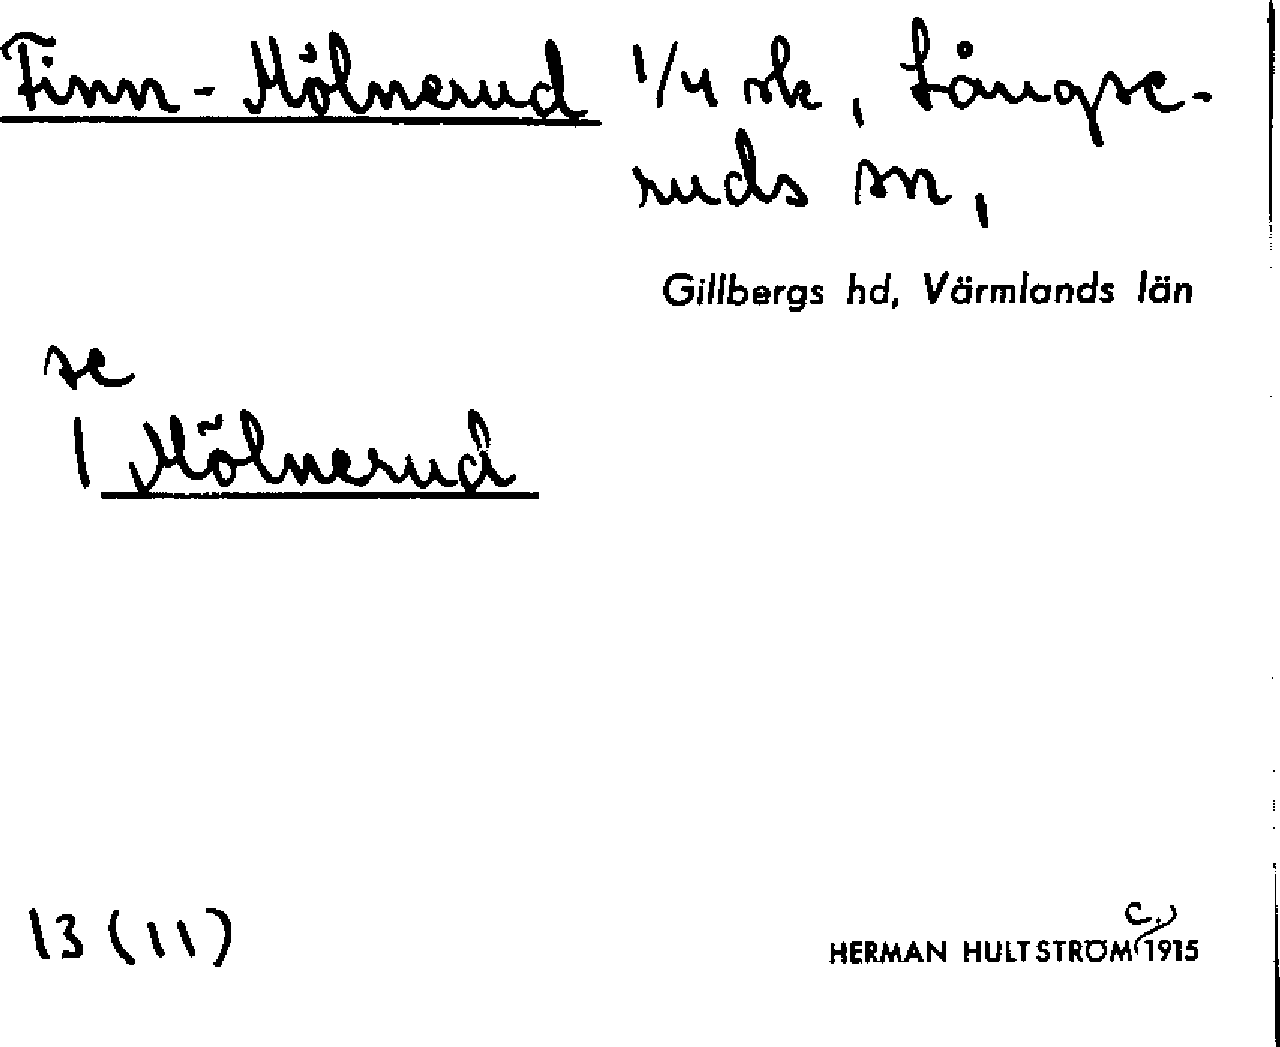 Finn-Mölnerud 1/4 sk, Långse-
ruds sn,
Gillbergs hd, Värmlands län
se
1 Mölnerud
13 (11)
HERMAN HULTSTRÖM c. 1915